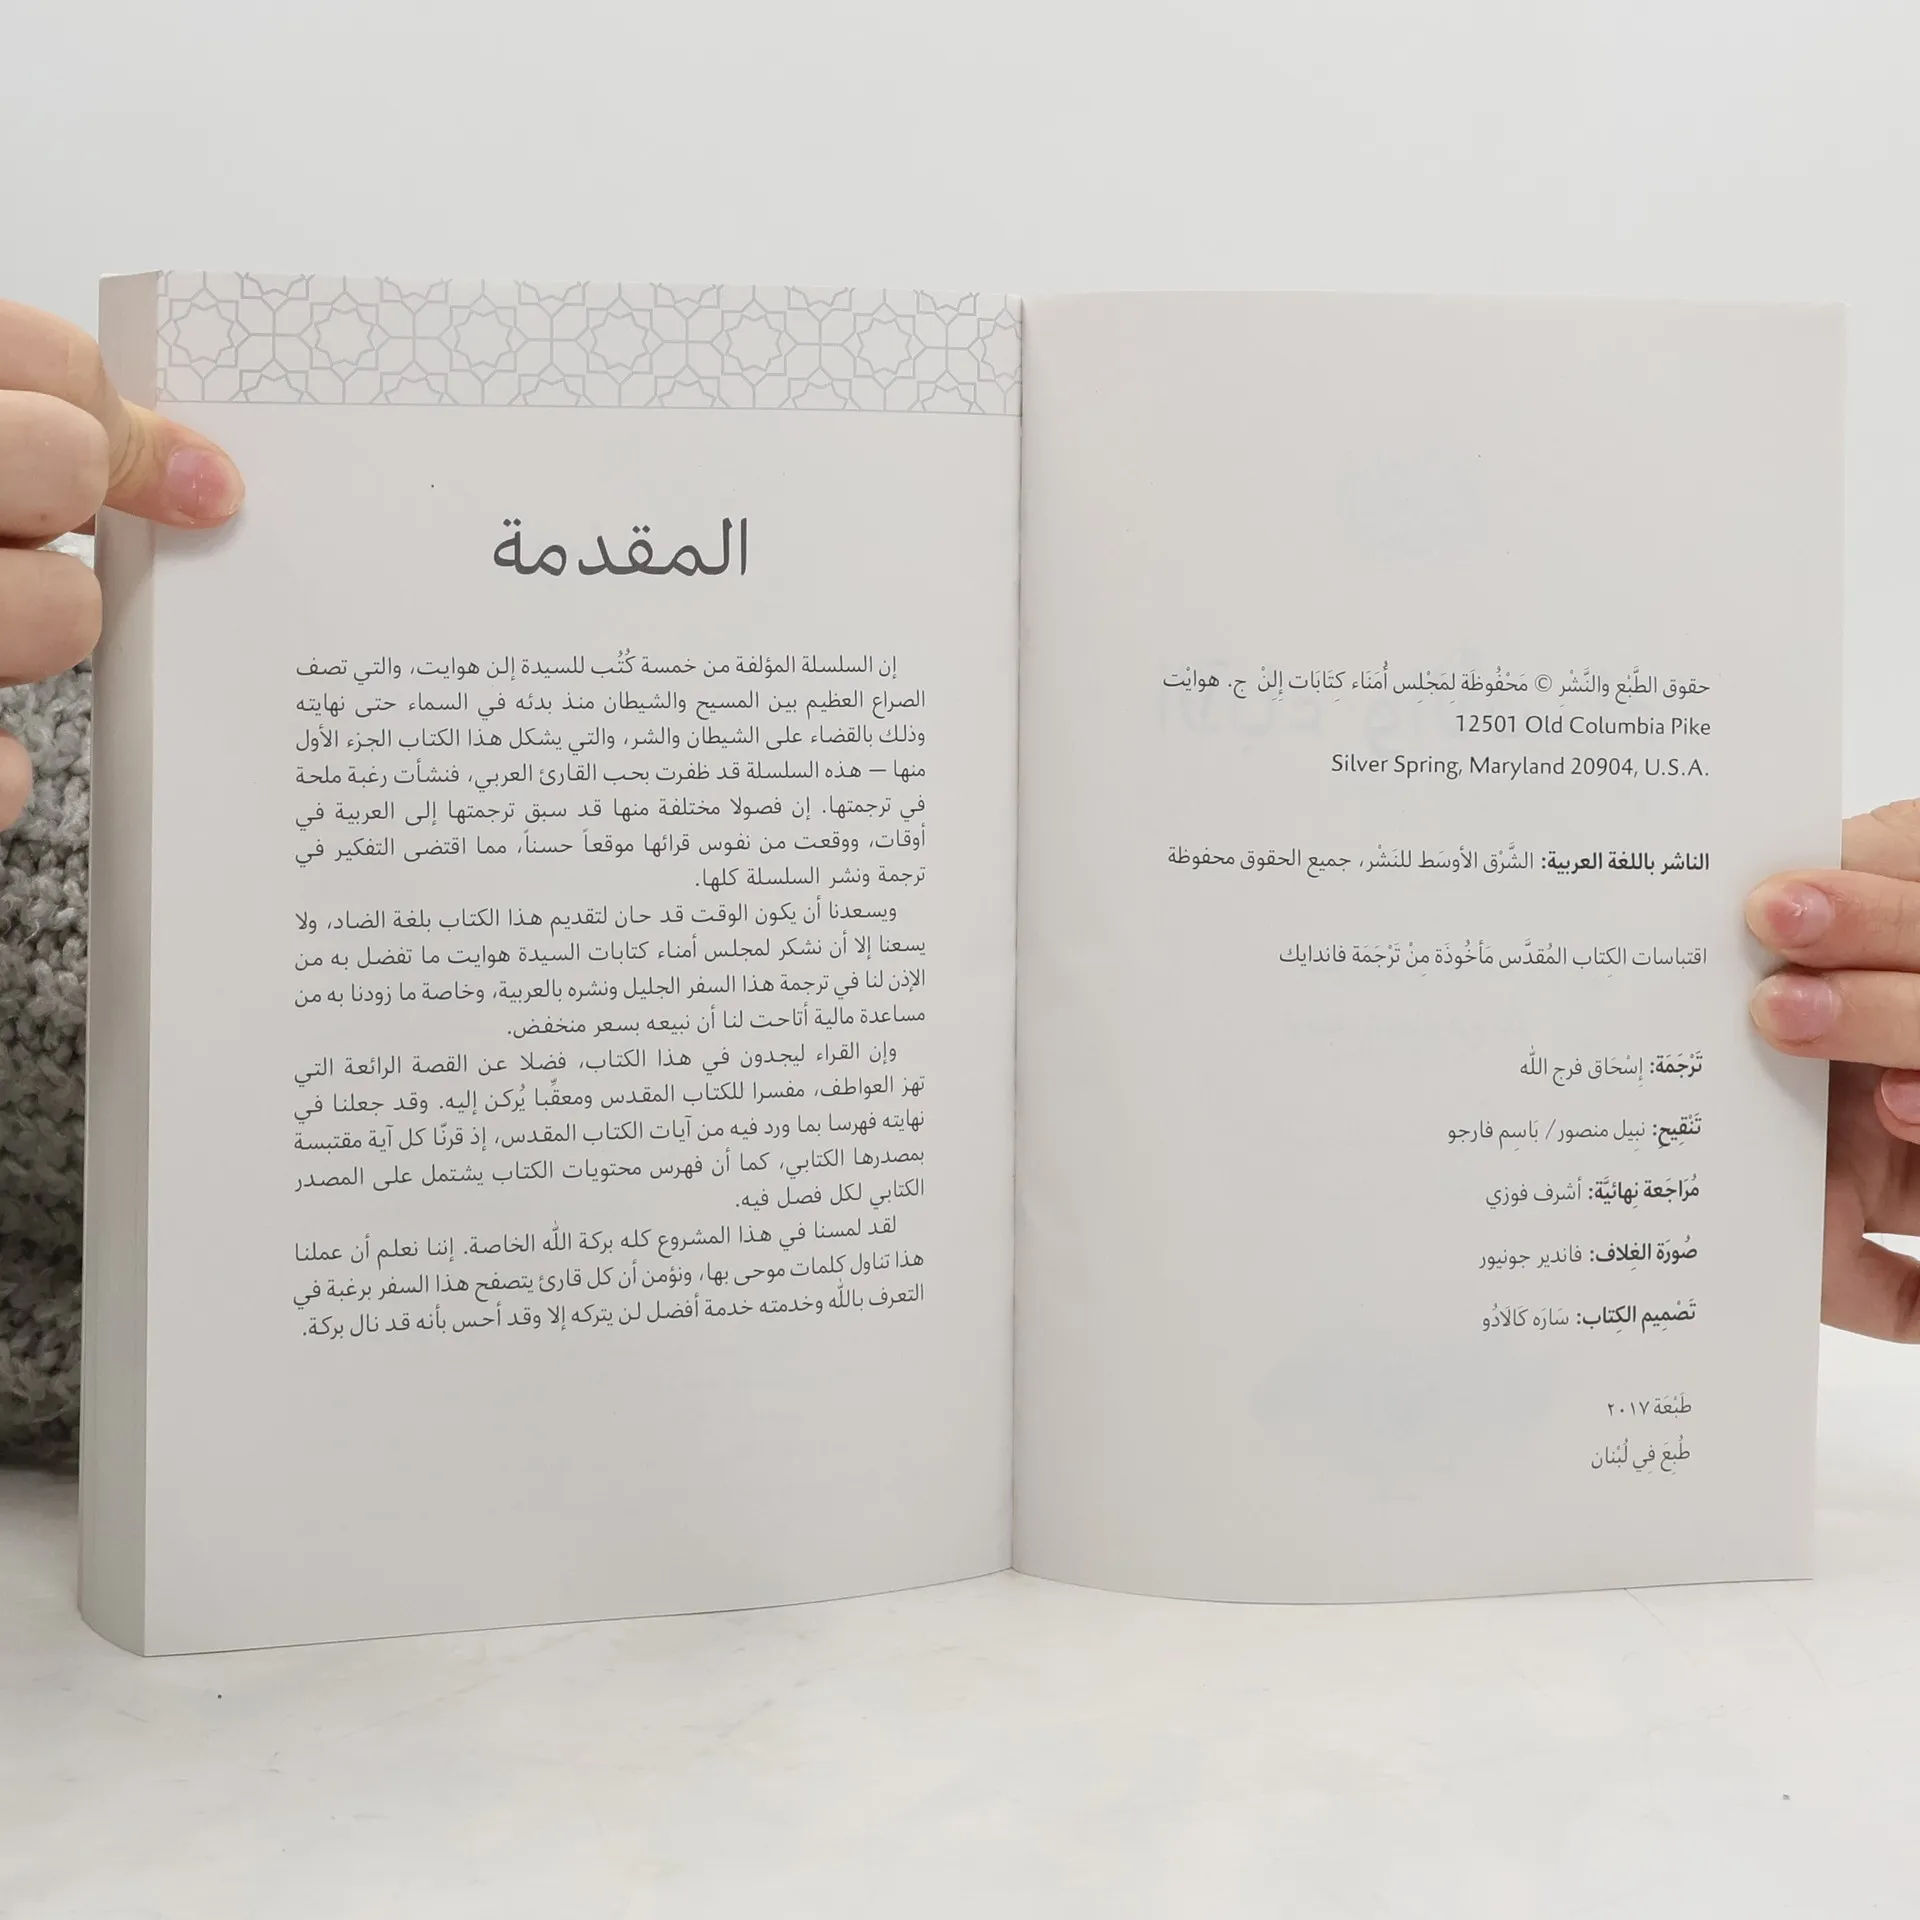 حقوق الطَّبْع والنَّشْرِ © مَحْفُوظَة لمَجْلِس أُمَنَاء كِتَابَات إِلِنْ ج. هوايْت
12501 Old Columbia Pike
Silver Spring, Maryland 20904, U.S.A.
الناشر باللغة العربية: الشَّرْق الأوسَط للنَشْر، جميع الحقوق محفوظة
اقتباسات الكِتاب المُقدَّس مَأخُوذَة مِنْ تَرْجَمَة فاندايك
تَرْجَمَة: إِسْحَاق فرج الله
تَنْقِيح: نبيل منصور/ بَاسِم فارجو
مُرَاجَعة نِهائيَّة: أشرف فوزي
صُورَة الغِلاف: فاندير جونيور
تَصْمِيم الكِتاب: سَارَه كَالَادُو
طَبْعَة ٢٠١٧
طُبِعَ فِي لُبْنان
المقدمة
إن السلسلة المؤلفة من خمسة كُتُب للسيدة إلن هوايت، والتي تصف
الصراع العظيم بين المسيح والشيطان منذ بدئه في السماء حتى نهايته
وذلك بالقضاء على الشيطان والشر، والتي يشكل هذا الكتاب الجزء الأول
منها — هذه السلسلة قد ظفرت بحب القارئ العربي، فنشأت رغبة ملحة
في ترجمتها. إن فصولا مختلفة منها قد سبق ترجمتها إلى العربية في
أوقات، ووقعت من نفوس قرائها موقعاً حسناً، مما اقتضى التفكير في
ترجمة ونشر السلسلة كلها.
ويسعدنا أن يكون الوقت قد حان لتقديم هذا الكتاب بلغة الضاد، ولا
يسعنا إلا أن نشكر لمجلس أمناء كتابات السيدة هوايت ما تفضل به من
الإذن لنا في ترجمة هذا السفر الجليل ونشره بالعربية، وخاصة ما زودنا به من
مساعدة مالية أتاحت لنا أن نبيعه بسعر منخفض.
وإن القراء ليجدون في هذا الكتاب، فضلا عن القصة الرائعة التي
تهز العواطف، مفسرا للكتاب المقدس ومعقِّبا يُركن إليه. وقد جعلنا في
نهايته فهرسا بما ورد فيه من آيات الكتاب المقدس، إذ قرنّا كل آية مقتبسة
بمصدرها الكتابي، كما أن فهرس محتويات الكتاب يشتمل على المصدر
الكتابي لكل فصل فيه.
لقد لمسنا في هذا المشروع كله بركة الله الخاصة. إننا نعلم أن عملنا
هذا تناول كلمات موحى بها، ونؤمن أن كل قارئ يتصفح هذا السفر برغبة في
التعرف بالله وخدمته خدمة أفضل لن يتركه إلا وقد أحس بأنه قد نال بركة.